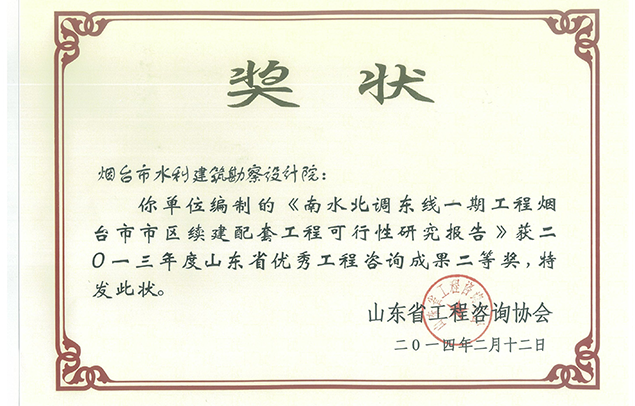 奖状
烟台市水利建筑勘察设计院：
你单位编制的《南水北调东线一期工程烟
台市市区续建配套工程可行性研究报告》获二
〇一三年度山东省优秀工程咨询成果二等奖，特
发此状。
山东省工程咨询协会
二〇一四年二月十二日